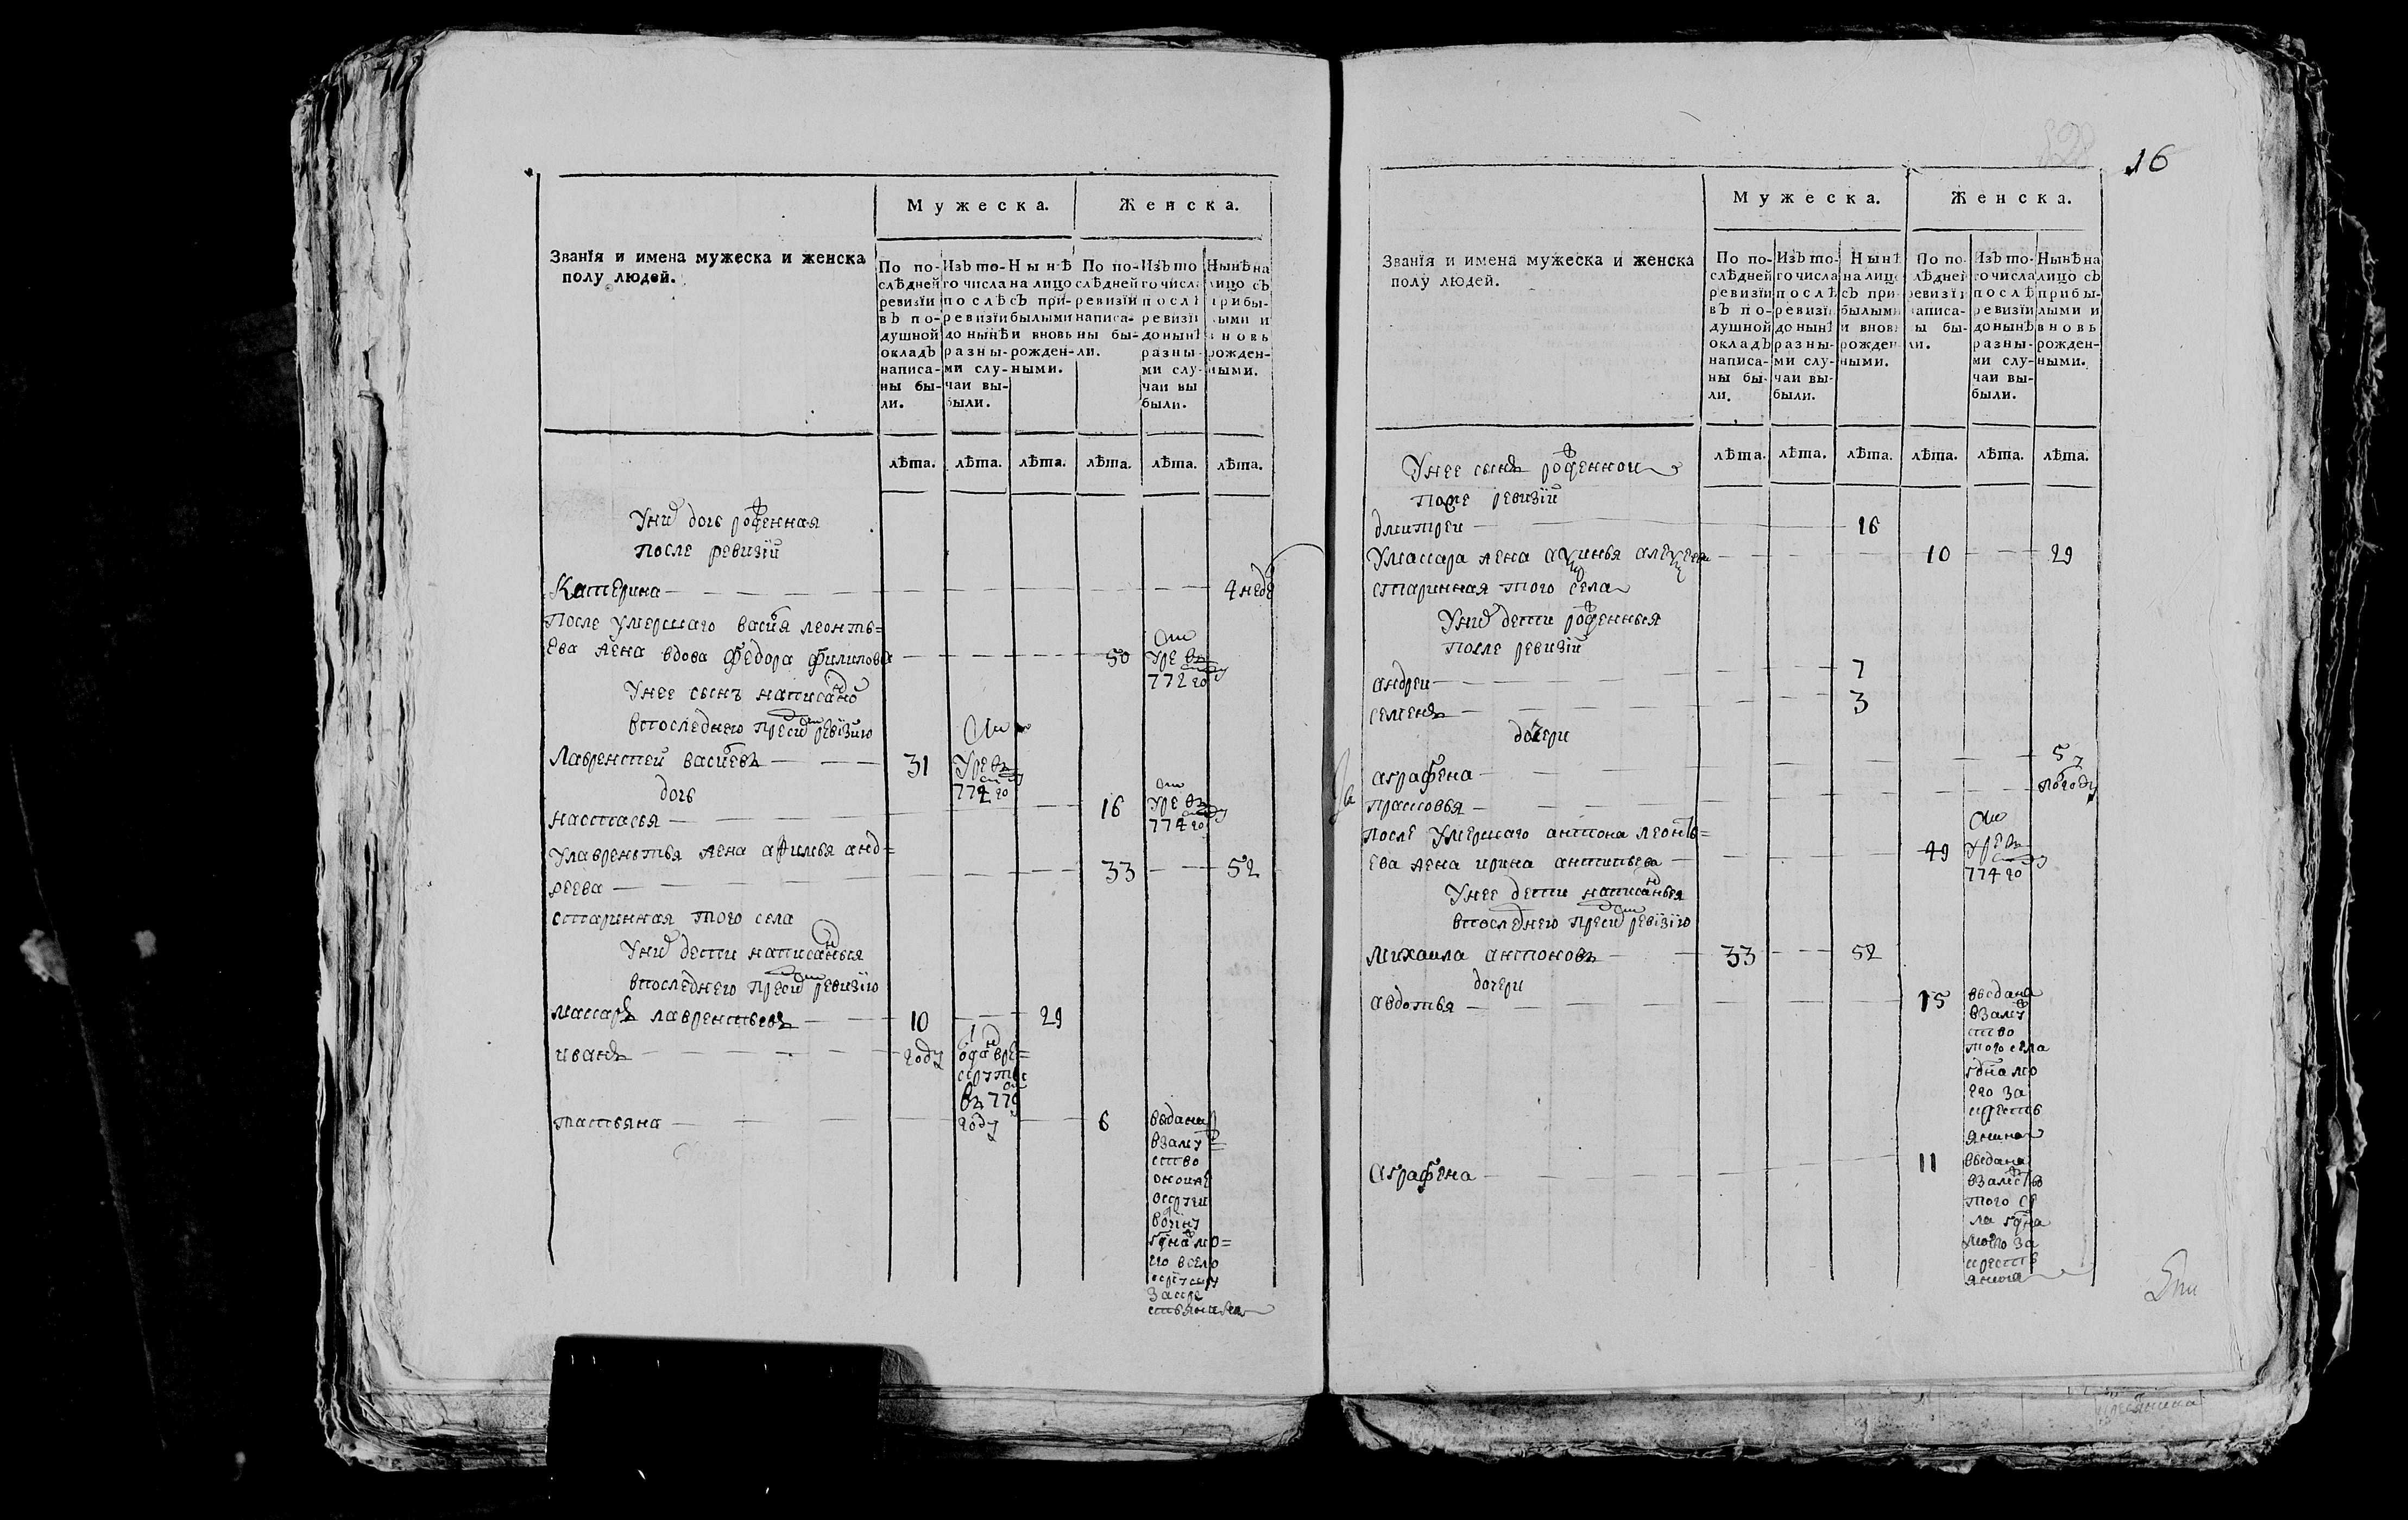 Званїя и имена мужеска и женска
полу людей.
Мужеска.
Женска.
По по-
слѣдней
ревизїи
въ по-
душной
окладъ
написа-
ны бы-
ли.
Изъ то-
го числа
послѣ
ревизїи
до нынѣ
разны-
ми слу-
чаи вы-
были.
Нынѣ
на лицо
съ при-
былыми
и вновь
рожден-
ными.
По по-
слѣдней
ревизїи
написа-
ны бы-
ли.
Изъ то
го числа
послѣ
ревизїи
до нынѣ
разны-
ми слу-
чаи вы
были.
Нынѣ на
лицо съ
прибы-
лыми и
вновь
рожден-
ными.
лѣта. лѣта. лѣта. лѣта. лѣта. лѣта.
Уних дочь рожденная
после ревизїи
Катерина 4 неде
После умершаго васил леонть=
ева жена вдова федора филипова 50
772 го
Унее сынъ написанно
впоследнею пред сим ревїзию
Лаврентей василевъ 31
774 го
дочь
настасья 16
774 го
Улаврентья жена афимья анд=
реева 33 52
старинная того села
Уних дети написанныя
впоследнею пред сим ревизию
макаръ лаврентьевъ 10 29
иванъ году
отдан вре=
круты
въ 779
году
татьяна 6
выдана
взаму=
ство
16
Званїя и имена мужеска и женска
полу людей.
Мужеска.
Женска.
По по-
слѣдней
ревизїи
въ по-
душной
окладъ
написа-
ны бы-
ли.
Изъ то-
го числа
послѣ
ревизїи
до нынѣ
разны-
ми слу-
чаи вы-
были.
Нынѣ
на лицо
съ при-
былыми
и вновь
рожден-
ными.
По по-
слѣдней
ревизїи
написа-
ны бы-
ли.
Изъ то-
го числа
послѣ
ревизїи
до нынѣ
разны-
ми слу-
чаи вы-
были.
Нынѣ на
лицо съ
прибы-
лыми и
вновь
рожден-
ными.
лѣта. лѣта. лѣта. лѣта. лѣта. лѣта.
Унее сынъ рожденной
после ревизїи
дмитреи 16
Умакара жена аксинья алексеева 10 29
старинная того села
Уних дети рожденныя
после ревизїи
андреи 7
семенъ 3
дочери
аграфена 5
прасковья погоду
после умершаго антона леонть=
ева жена ирина антипьева 49
774 го
Унее дети написанныя
впоследнею пред сим ревїзїю
михаила антоновъ 33 52
дочери
авдотья 15
выдана
взаму
ство
того села
за
кресть
янина
Аграфена 11
выдана
взамуство
того се
ла
моего за
кресть
янина